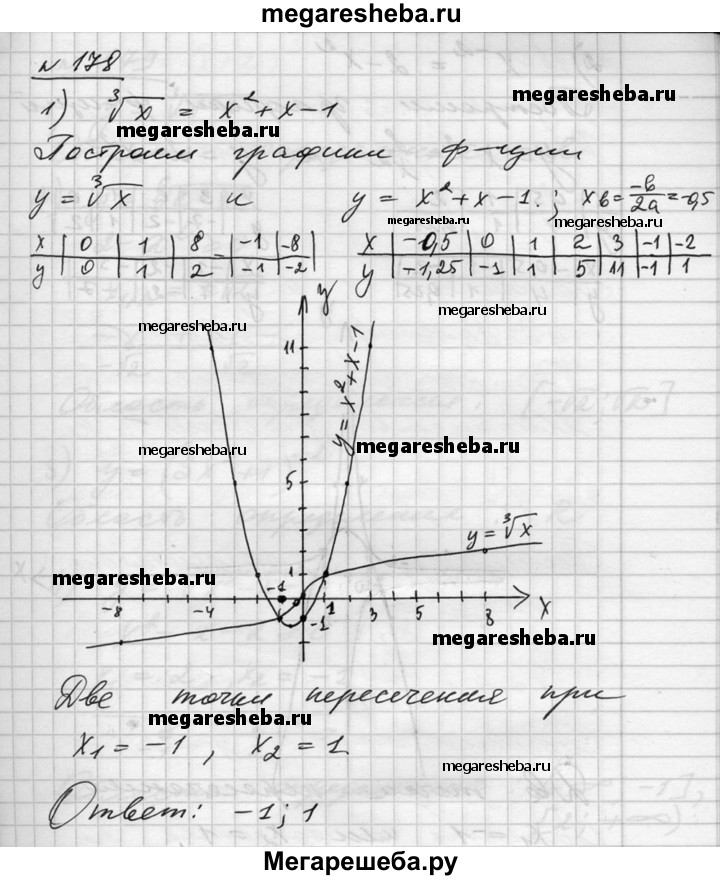 megaresheba.ru
№ 178
1) ∛x = x² + x – 1
megaresheba.ru
megaresheba.ru
Построим графики ф-ции
y = ∛x и y = x² + x – 1. ; xв = –b/2a = –0,5
megaresheba.ru
megaresheba.ru
x | 0 | 1 | 8 | –1 | –8 |
y | 0 | 1 | 2 | –1 | –2 |
x | –0,5 | 0 | 1 | 2 | 3 | –1 | –2
y | –1,25 | –1 | 1 | 5 | 11 | –1 | 1
megaresheba.ru
megaresheba.ru
y
11
y = x² + x – 1
megaresheba.ru
megaresheba.ru
5
y = ∛x
megaresheba.ru
1
–1
–8 –4 –1 1 3 5 8 x
megaresheba.ru
Две точки пересечения при
megaresheba.ru
x₁ = –1 , x₂ = 1
megaresheba.ru
Ответ: –1; 1
Мегарешеба.ру